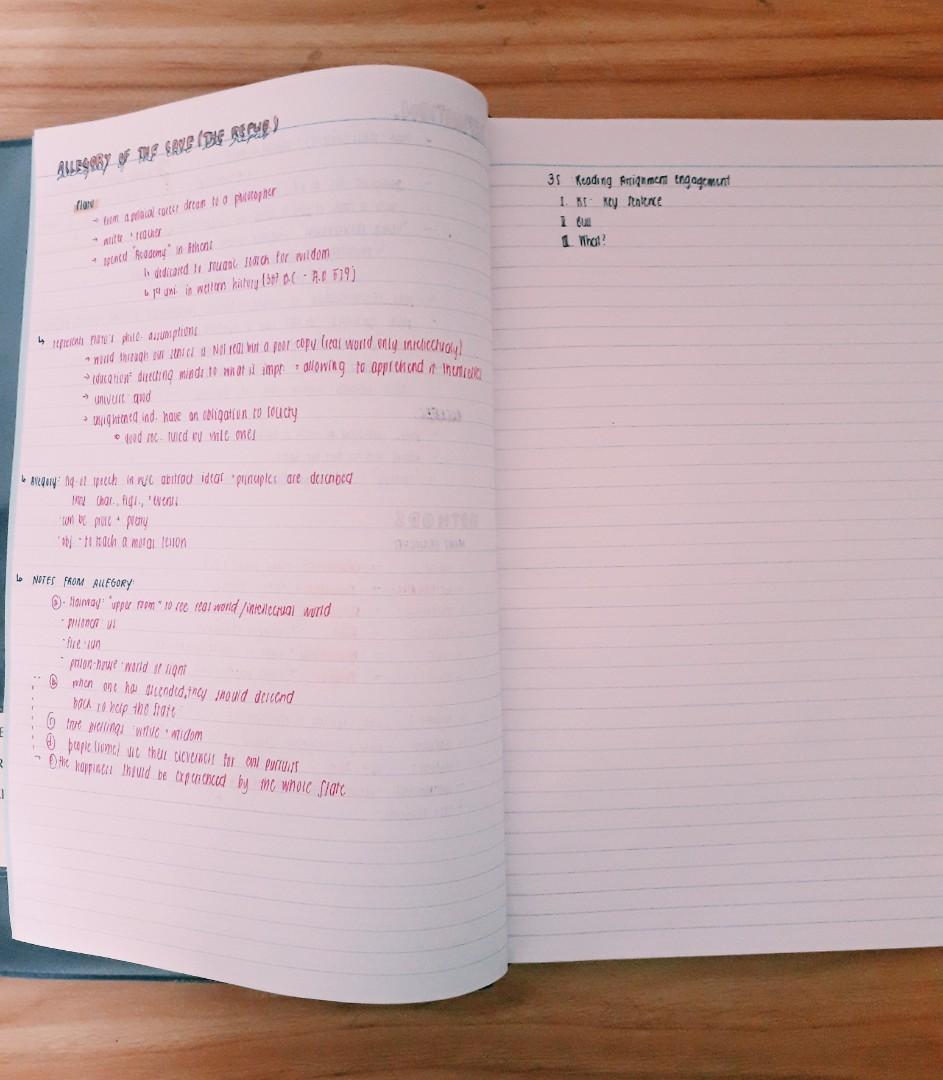 ALLEGORY OF THE CAVE (THE REPUB)
Plato
→ from a political career dream to a philosopher
→ writer + teacher
→ opened "Academy" in Athens
↳ dedicated to socratic search for wisdom
↳ 1st uni. in western history (387 B.C. - A.D. 529)
↳ represents Plato's philo. assumptions
→ world through our senses is Not real but a poor copy (real world only intellectually)
→ education = directing minds to what is impt. + allowing to apprehend it themselves
→ universe: good
→ enlightened ind. have an obligation to society
good soc. ruled by wise ones
↳ Allegory: fig. of speech in w/c abstract ideas + principles are described
char., figs., + events
can be prose + poetry
obj. - to teach a moral lesson
↳ NOTES FROM ALLEGORY:
ⓐ - stairway: "upper room" to see real world/intellectual world
- prisoner: us
- fire: sun
- prison-house: world of sight
ⓑ when one has ascended, they should descend
back to help the State
ⓒ true blessings: virtue + wisdom
ⓓ people (some) use their cleverness for evil pursuits
ⓔ the happiness should be experienced by the whole State
3S Reading Assignment Engagement
I. KS: Key Sentence
II
III. What?